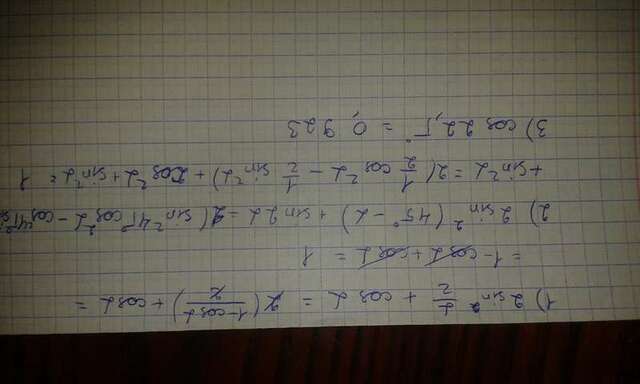 1) 2 sin² α/2 + cos α = 2((1-cos α)/2) + cos α =
= 1 - cos α + cos α = 1
2) 2 sin² (45° - α) + sin 2α = 2(sin² 45° cos² α - cos² 45° sin
+ sin² α = 2(1/2 cos² α - 1/2 sin² α) + cos² α + sin² α = 1
3) cos 22,5° = 0,923